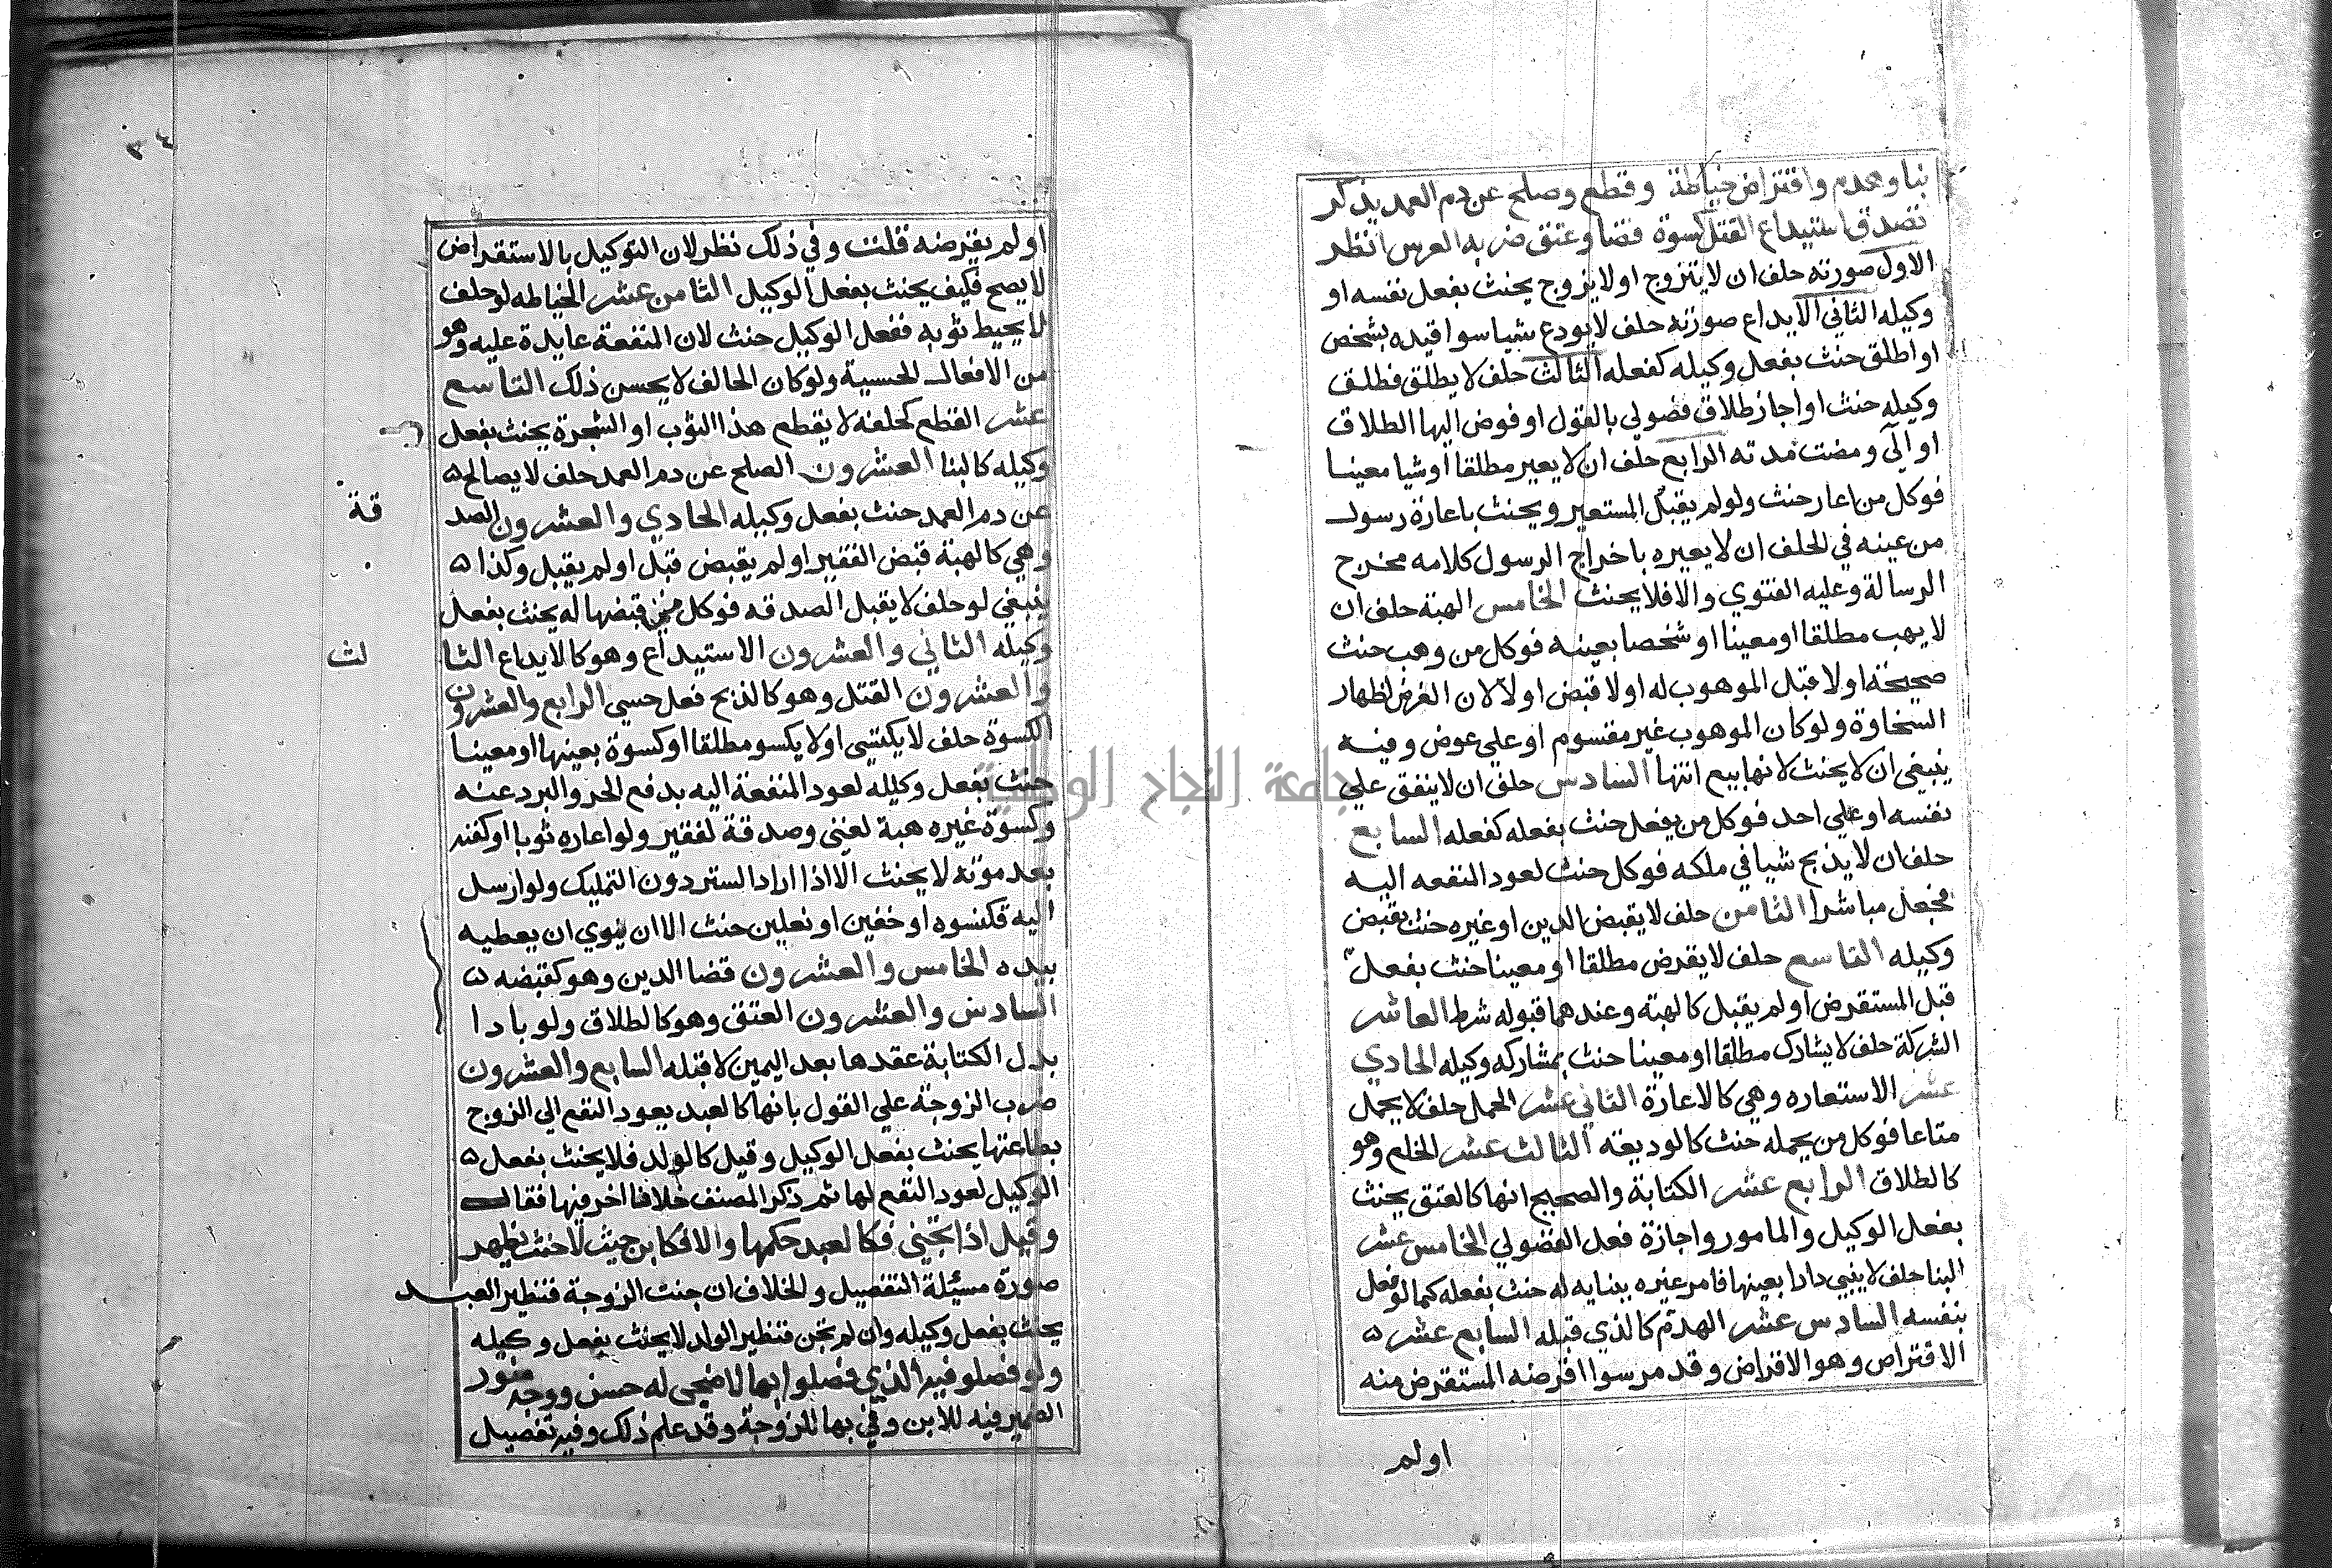 بنا وهدم واقتراض خياطة وقطع وصلح عن دم العمد يذكر
تصدق استيداع القتل كسوة قضا وعتق ضربه العرس انظر
الاول صورته حلف ان لا يتزوج او لا يزوج يحنث بفعل نفسه او
وكيله الثاني الايداع صورته حلف لا يودع شيا سوا قيده بشخص
او اطلق حنث بفعل وكيله كفعله الثالث حلف لا يطلق فطلق
وكيله حنث او اجاز طلاق فضولي بالقول او فوض اليها الطلاق
او الى ومضت مدته الرابع حلف ان لا يعير مطلقا او شيا معينا
فوكل من اعار حنث ولو لم يقبل المستعير ويحنث باعارة رسول
من عينه في الحلف ان لا يعيره باخراج الرسول كلامه مخرج
الرسالة وعليه الفتوي والا فلا يحنث الخامس الهبة حلف ان
لا يهب مطلقا او معينا او شخصا بعينه فوكل من وهب حنث
صحيحة او لا قبل الموهوب له او لا قبض او لا لان الغرض اظهار
السخاوة ولو كان الموهوب غير مقسوم او علي عوض وفيه
ينبغي ان لا يحنث لانها بيع انتها السادس حلف ان لا ينفق علي
نفسه او علي احد فوكل من يفعل حنث بفعله كفعله السابع
حلف ان لا يذبح شيا في ملكه فوكل حنث لعود النفعه اليه
فجعل مباشرا الثامن حلف لا يقبض الدين او غيره حنث بقبض
وكيله التاسع حلف لا يقرض مطلقا او معينا حنث بفعل
قبل المستقرض او لم يقبل كالهبة وعندهما قبوله شرط العاشر
الشركة حلف لا يشارك مطلقا او معينا حنث بمشاركه وكيله الحادي
عشر الاستعاره وهي كالاعارة الثاني عشر الحمل حلف لا يحمل
متاعا فوكل من يحمله حنث كالوديعه الثالث عشر الخلع وهو
كالطلاق الرابع عشر الكتابة والصحيح انها كالعتق يحنث
بفعل الوكيل والمامور واجازة فعل الفضولي الخامس عشر
البنا حلف لا يبني دادا بعينها فامر غيره ببنايه له حنث بفعله كما لو فعل
بنفسه السادس عشر الهدم كالذي قبله السابع عشر
الاقتراض وهو الاقراض وقد مر سوا اقرضه المستقرض منه
اولم
او لم يقرضه قلت وفي ذلك نظر لان التوكيل بالاستقراض
لا يصح فكيف يحنث بفعل الوكيل الثامن عشر الخياطه لو حلف
لا يخيط ثوبه ففعل الوكيل حنث لان المنفعة عايدة عليه وهو
من الافعال الحسية ولو كان الحالف لا يحسن ذلك التاسع
عشر القطع كحلفه لا يقطع هذا الثوب او الشجرة يحنث بفعل
وكيله كالبنا العشرون الصلح عن دم العمد حلف لا يصالح
عن دم العمد حنث بفعل وكيله الحادي والعشرون الصد
قة
وهي كالهبة قبض الفقير او لم يقبض قبل او لم يقبل وكذا
ينبغي لو حلف لا يقبل الصدقه فوكل من قبضها له يحنث بفعل
وكيله الثاني والعشرون الاستيداع وهو كالايداع الثا
لث
والعشرون القتل وهو كالذبح فعل حسي الرابع والعشرون
الكسوة حلف لا يكتسي او لا يكسو مطلقا او كسوة بعينها او معينا
حنث بفعل وكيله لعود المنفعة اليه بدفع الحر والبرد عنه
وكسوة غيره هبة لغني وصدقة لفقير ولو اعاره ثوبا او كفنه
بعد موته لا يحنث الا اذا اراد الستر دون التمليك ولو ارسل
اليه قلنسوه او خفين او نعلين حنث الا ان ينوي ان يعطيه
بيده الخامس والعشرون قضا الدين وهو كقبضه
السادس والعشرون العتق وهو كالطلاق ولو بادا
بدل الكتابة عقدها بعد اليمين لا قبله السابع والعشرون
ضرب الزوجة علي القول بانها كالعبد يعود النفع الي الزوج
بطاعتها يحنث بفعل الوكيل وقيل كالولد فلا يحنث بفعل
الوكيل لعود النفع لها ثم ذكر المصنف خلافا اخر فيها فقال
وقيل اذا تجني فكالعبد حكمها والا فكابن حيث لا حنث يظهر
صورة مسئلة التفصيل والخلاف ان جنت الزوجة فنظير العبد
يحنث بفعل وكيله وان لم تجن فنظير الولد لا يحنث بفعل وكيله
ولو فصلو فيه الذي فصلوا بها لاضحى له حسن ووجه منور
الضمير فيه للابن وفي بها للزوجة وقد علم ذلك وفيه تفصيل
جامعة النجاح الوطنية